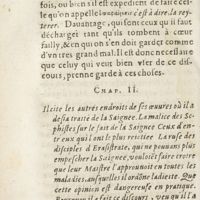 fois, ou bien s'il est expedient de faire ce-
le qu'on appelle c'est à dire, la reïte-
terer. Dauantage, qui sont ceux qu'il faut
descharger tant qu'ils tombent à cœur
failly, & en qui s'en doit garder comme
d'vn tres grand mal: Il est donc necessaire
que celuy qui veut bien vser de ce dis-
cours, prenne garde à ces choses.
CHAP. II.
Il cite les autres endroits de ses œuures où il a
desia traité de la Saignee. La malice des So-
phistes sur le fait de la Saignee Ceux d'en-
tr'eux qui l'ont le plus reiettee. La ruse des
disciples d'Erasistrate, qui ne pouuans plus
empescher la Saignee, vouloiët faire croire
que leur Maistre l'approuuoit en toutes les
maladies, ausquelles il ordōne la diete. Que
cette opinion est dangereuse en pratique.
il a fait ce discours, veu qu'il a